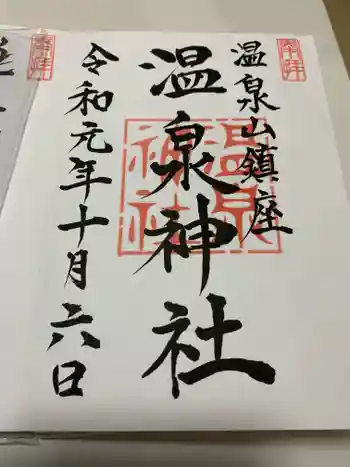 奉拝
温泉山鎮座
温泉神社
温泉神社
令和元年十月六日
奉拝